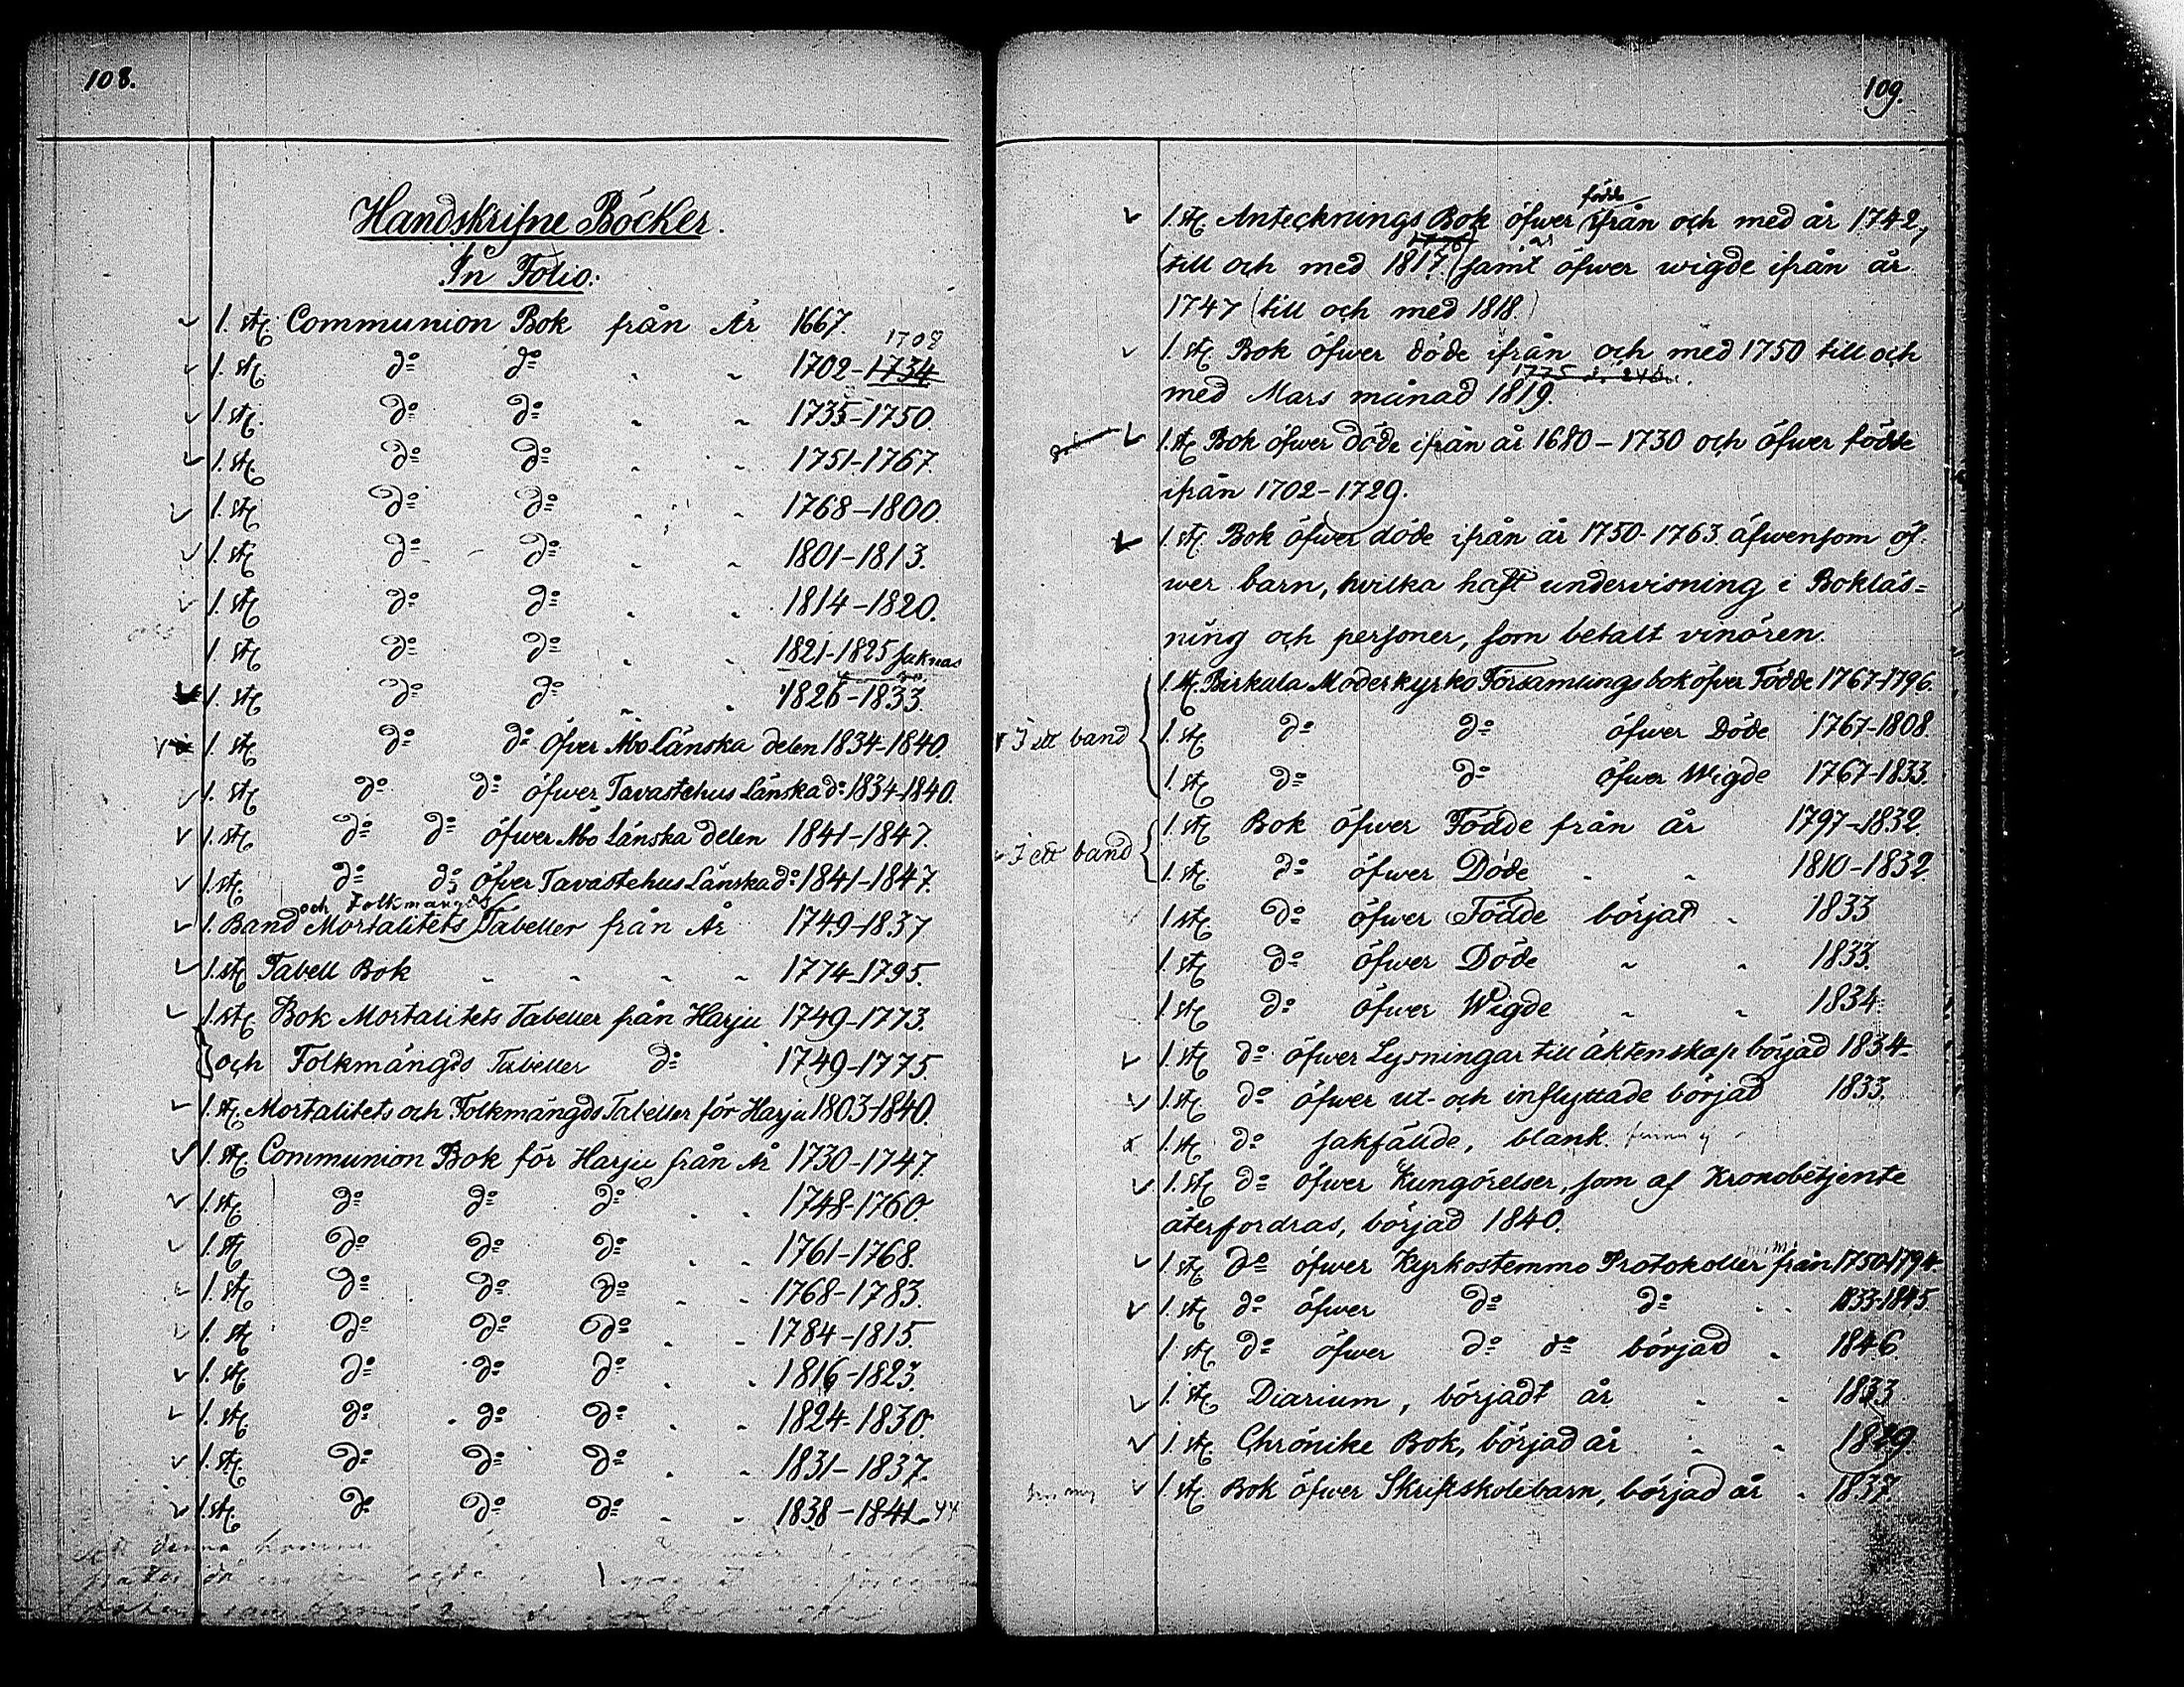 108.
Handskrifne Böcker.
In Folio:
1. st. Communion Bok från År 1667.
1708
1. st. do do " " 1702-1734
1. st. do do " " 1735-1750.
1. st. do do " " 1751-1767.
1. st. do do " " 1768-1800.
1. st. do do " " 1801-1813.
1. st. do do " " 1814-1820.
1. st. do do " " 1821-1825 saknas
1. st. do do " " 1826-1833.
1. st. do do öfver Åbo Länska delen 1834-1840.
1. st. do do öfwer Tavastehus Länska do 1834-1840.
1. st. do do öfwer Åbo Länska delen 1841-1847.
1. st. do do öfver Tavastehus Länska do 1841-1847.
och Folkmängds
1. Band Mortalitets Tabeller från År 1749-1837
1. st. Tabell Bok " " " " 1774-1795.
1. st. Bok Mortalitets Tabeller från Harju 1749-1773.
och Folkmängds Tabeller do 1749-1775.
1. st. Mortalitets och Folkmängds Tabeller för Harju 1803-1840.
1. st. Communion Bok för Harju från År 1730-1747.
1. st. do do do " " 1748-1760.
1. st. do do do " " 1761-1768.
1. st. do do do " " 1768-1783.
1. st. do do do " " 1784-1815.
1. st. do do do " " 1816-1823.
1. st. do do do " " 1824-1830.
1. st. do do do " " 1831-1837.
1. st. do do do " " 1838-1841-44
109.
födde
1. st. Antecknings Bok öfwer ifrån och med år 1742,
1776
till och med 1817. (samt öfwer wigde ifrån år
1747 (till och med 1818.)
1. st. Bok öfwer döde ifrån och med 1750 till och
1775
med Mars månad 1819.
1. st. Bok öfwer döde ifrån år 1680-1730 och öfwer födde
ifrån 1702-1729.
1. st. Bok öfwer döde ifrån år 1750-1763. äfwensom öf-
wer barn, hvilka haft undervisning i Bokläs=
ning och personer, som betalt vinören.
1. st. Birkala Moderkyrko Församlings bok öfver Födde 1767-1796.
I ett band
1. st. do do öfwer Döde 1767-1808.
1. st. do do öfwer Wigde 1767-1833.
1. st. Bok öfwer Födde från år 1797-1832.
I ett band
1. st. do öfwer Döde " " 1810-1832
1. st. do öfwer Födde börjad " 1833
1. st. do öfwer Döde " " 1833.
1. st. do öfwer Wigde " " 1834.
1. st. do öfwer Lysningar till äktenskap börjad 1834.
1. st. do öfwer ut- och inflyttade börjad 1833.
1. st. do sakfällde, blank.
1. st. do öfwer Kungörelser, som af Kronobetjente
återfordras, börjad 1840.
1. st. do öfwer Kyrkostemmo Protokoller från 1750-1794
1. st. do öfwer do do " " 1833-1845.
1. st. do öfwer do do börjad " 1846.
1. st. Diarium, börjadt år " " 1833
1. st. Chrönike Bok, börjad år " " 1829
1. st. Bok öfwer Skriftskolebarn, börjad år " 1837.